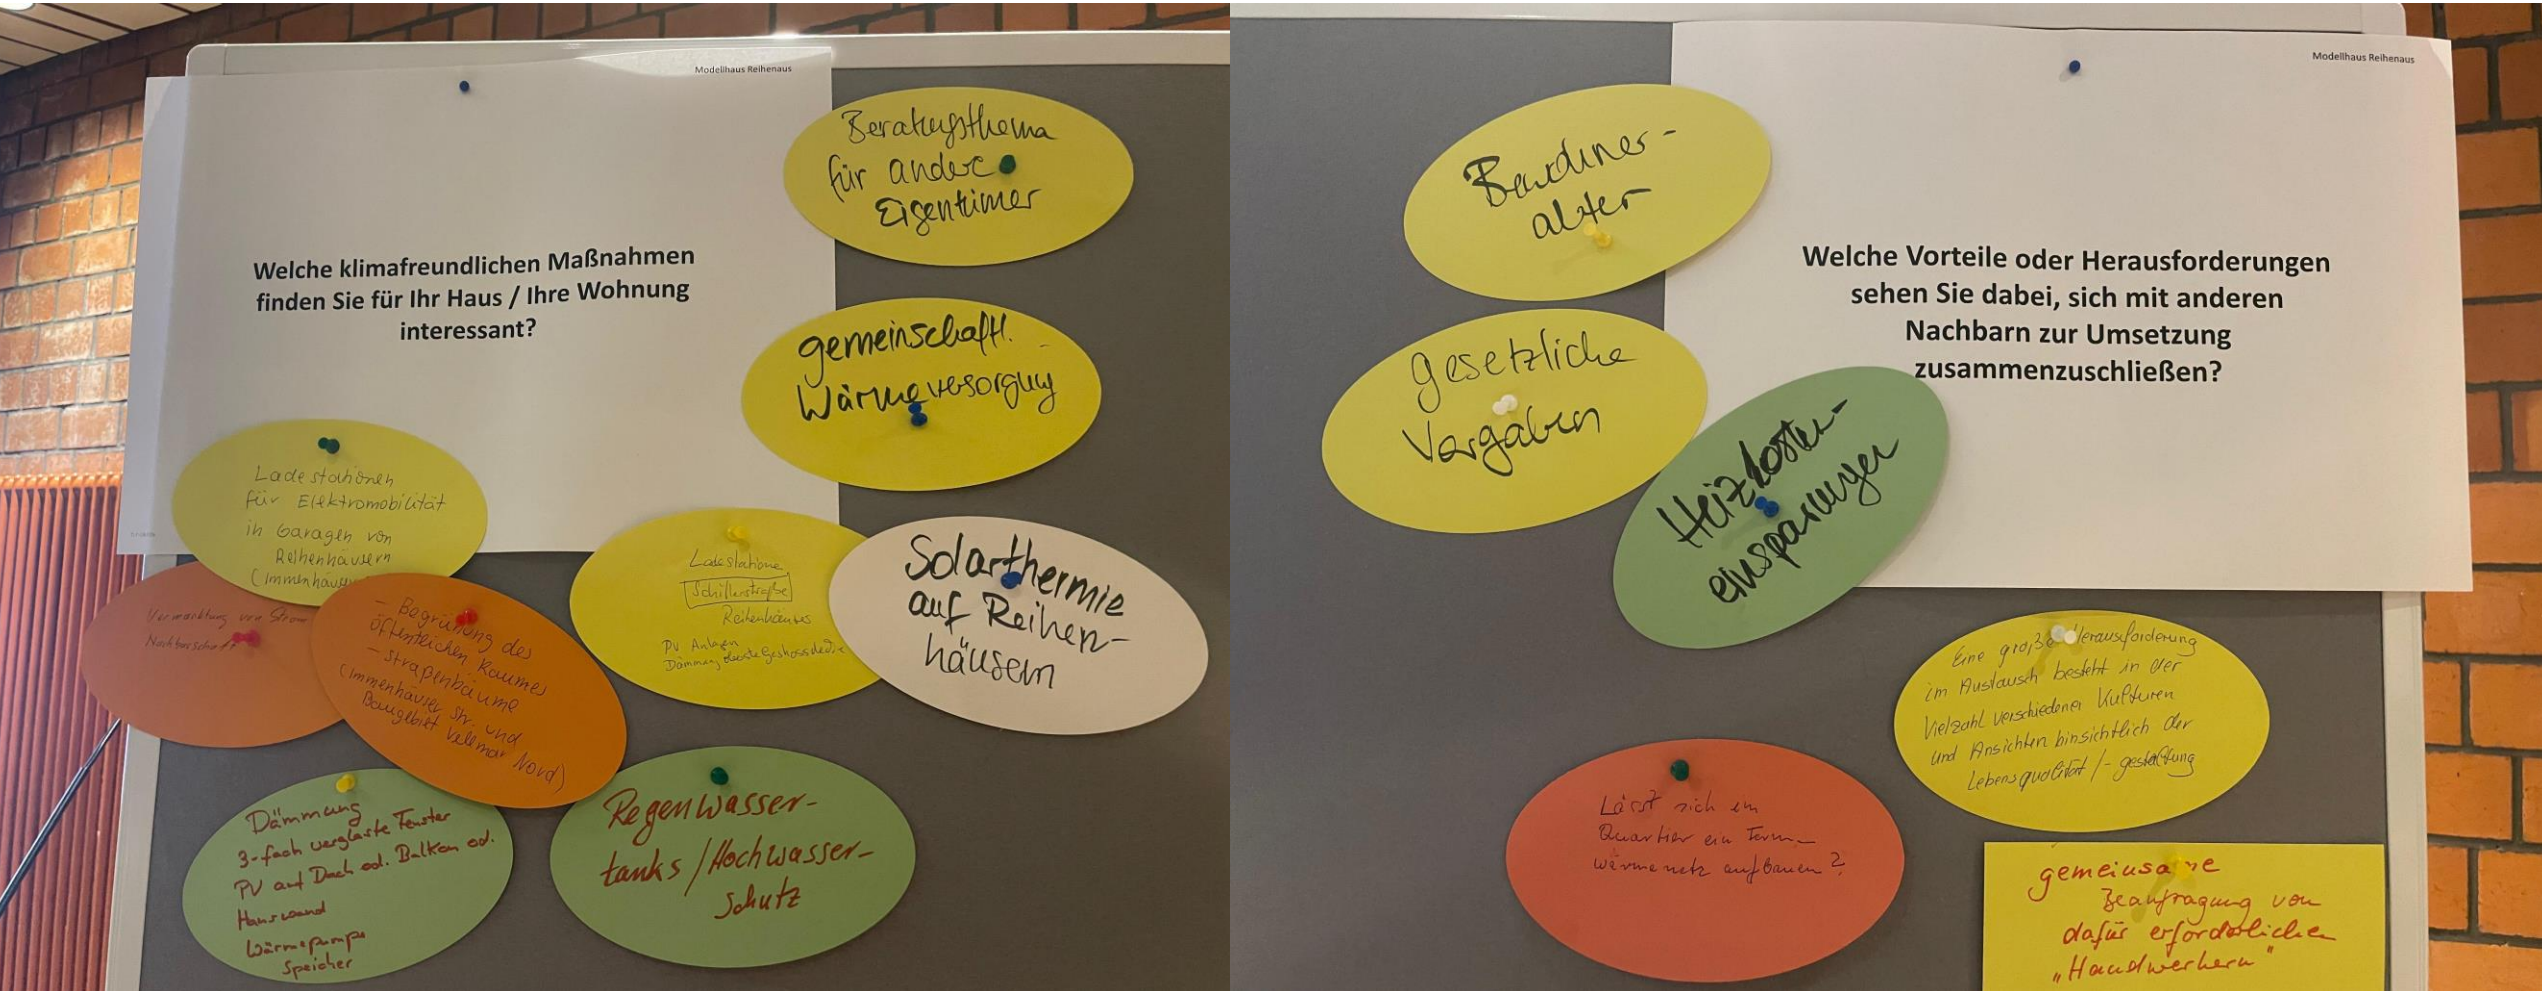 Modellhaus Reihenaus
Welche klimafreundlichen Maßnahmen
finden Sie für Ihr Haus / Ihre Wohnung
interessant?
Beratungsthema
für andere
Eigentümer
gemeinschaftl.
Wärmeversorgung
Ladestationen
für Elektromobilität
in Garagen von
Reihenhäusern
(Immenhäuser
Vermarktung von Strom
Nachbarschaft
- Begrünung des
öffentlichen Raumes
- Straßenbäume
(Immenhäuser Str. und
Baugebiet Vellmar Nord)
Ladestatione
Schillerstraße
Reihenhäuses
PV Anlagen
Dämmung oberste Geschossdecke
Solarthermie
auf Reihen-
häusern
Dämmung
3-fach verglaste Fenster
PV auf Dach od. Balkon od.
Hauswand
Wärmepumpe
Speicher
Regenwasser-
tanks / Hochwasser-
schutz
Modellhaus Reihenaus
Welche Vorteile oder Herausforderungen
sehen Sie dabei, sich mit anderen
Nachbarn zur Umsetzung
zusammenzuschließen?
alter
gesetzliche
Vorgaben
Heizkosten-
einsparungen
Eine große Herausforderung
im Austausch besteht in der
Vielzahl verschiedener Kulturen
und Ansichten hinsichtlich der
Lebensqualität / -gestaltung
Lässt sich im
Quartier ein
wärmenetz aufbauen?
gemeinsame
Beauftragung von
dafür erforderlichen
"Handwerkern"